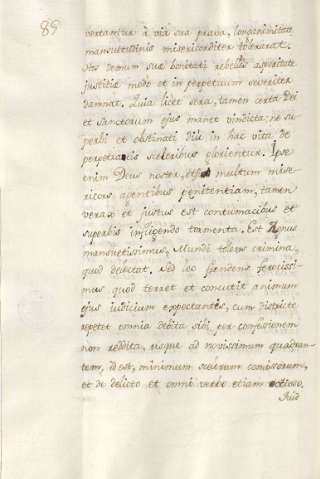 89
vertantur à via sua prava, longanimitate
mansuetissima misericorditer tolerarat.
Hos demum suæ bonitati rebelles asperitate
justitiæ modo et in perpetuum severiter
damnat. Quia licet sera, tamen certa Dei
et Sanctorum ejus manet vindicta: ne su
perbi et obstinati diu in hac vita de
perpetratis sceleribus glorientur. Ipse
enim Deus noster, etsi multum mise
ricors agentibus penitentiam, tamen
verax et justus est contumacibus et
superbis infligendo tamenta. Est Agnus
mansuetissimus, Mundi tolens crimina,
quod delectat. Sed leo fremens ferocissi
mus, quod terret et concutit animum
ejus iudicium expectantis, cum districte
repetet omnia debita sibi, per confessionem
non reddita, usque ad novissimum quadran
tem, id est, minimum scelerum comissorum,
et de delicto et omni verbo etiam otioso.
Aud